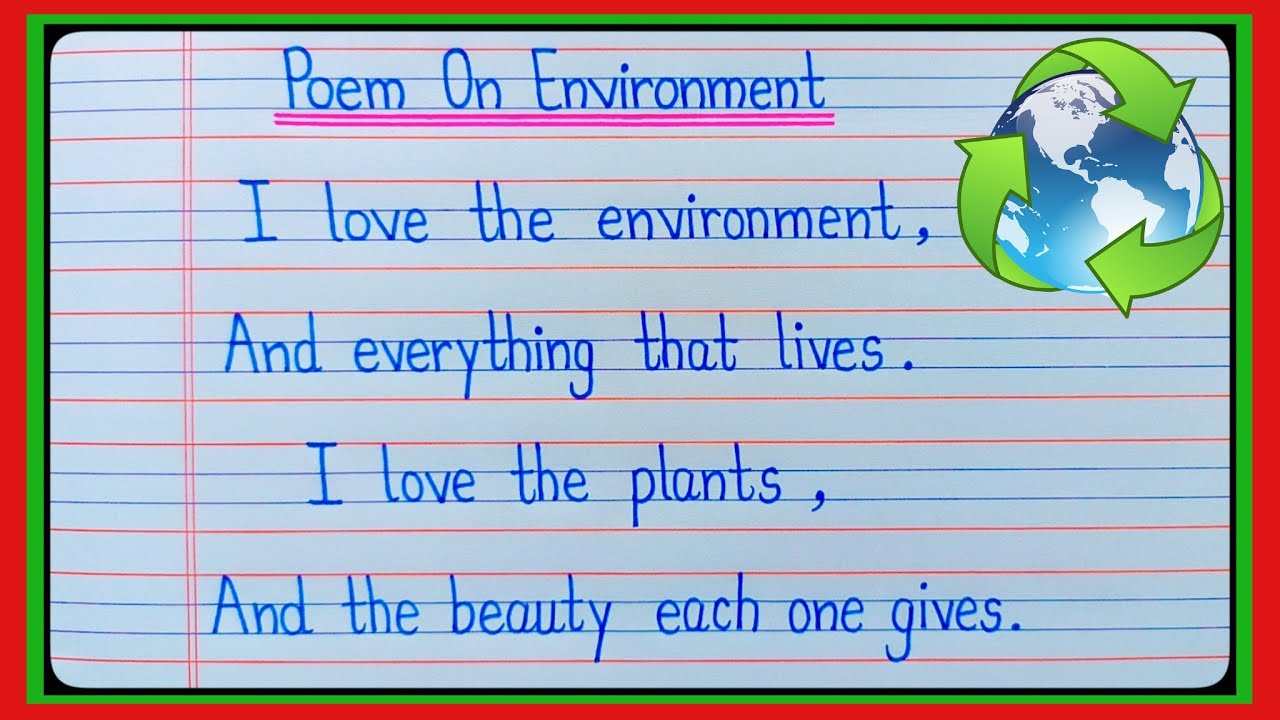 Poem On Environment
I love the environment,
And everything that lives.
I love the plants,
And the beauty each one gives.